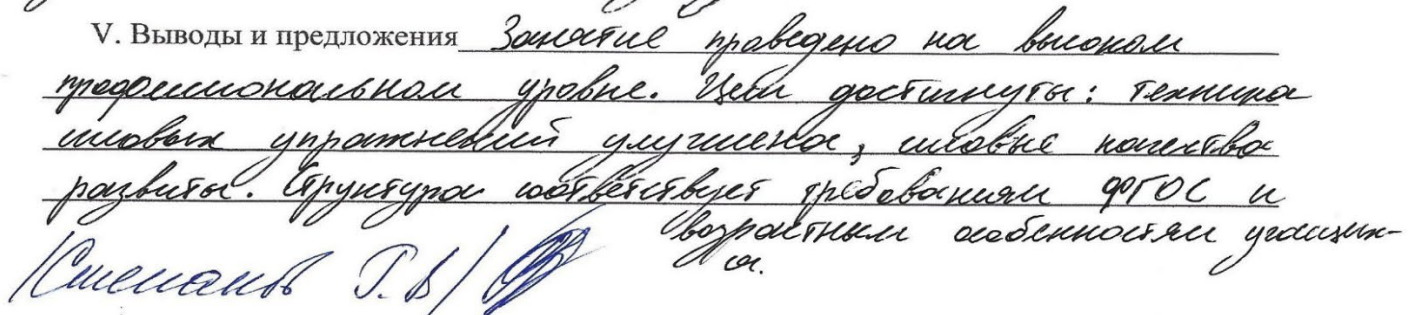 V. Выводы и предложения Занятие проведено на высоком
профессиональном уровне. Цели достигнуты: техника
силовых упражнений улучшена, силовые качества
развиты. Структура соответствует требованиям ФГОС и
возрастным особенностям учащих-
ся.
/Степанов Г.В/